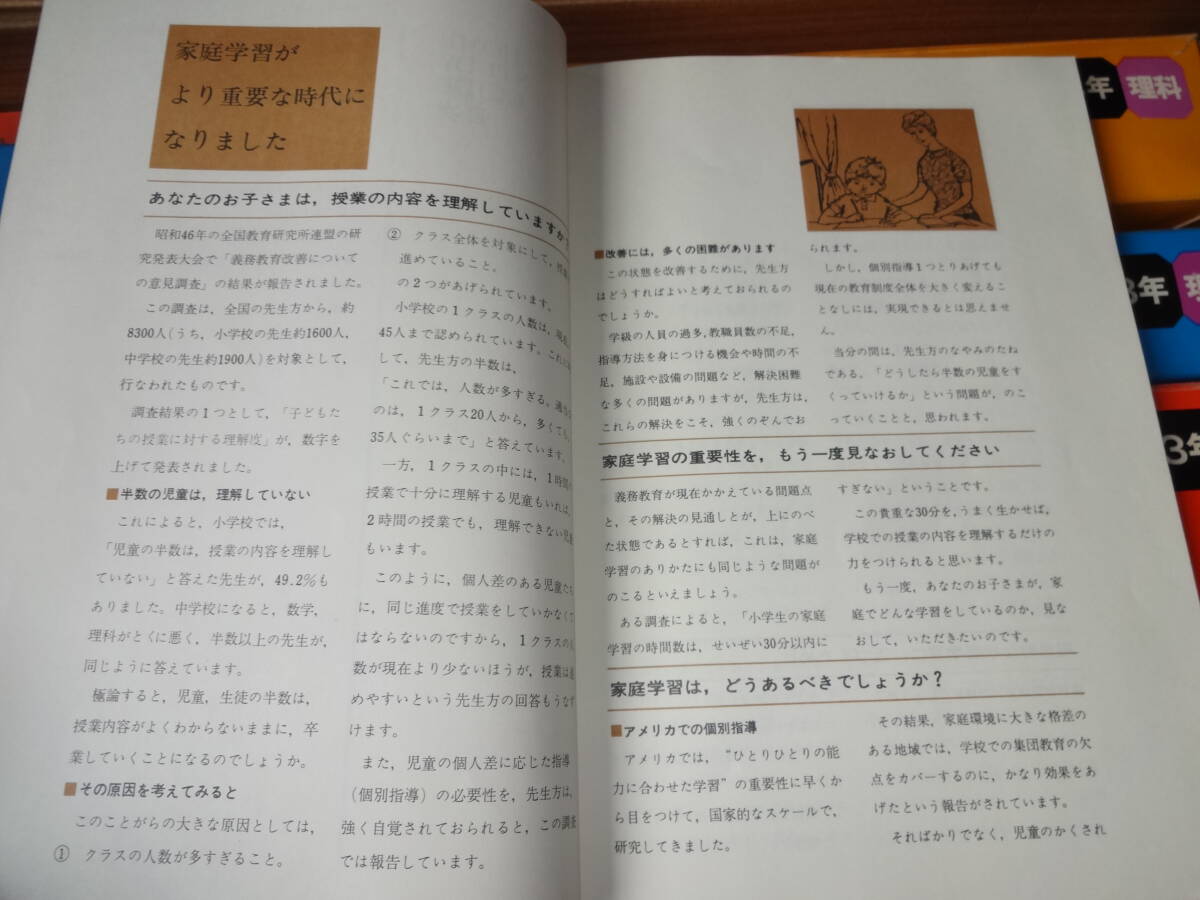 家庭学習が
より重要な時代に
なりました
あなたのお子さまは，授業の内容を理解していますか？
昭和46年の全国教育研究所連盟の研
究発表大会で「義務教育改善について
の意見調査」の結果が報告されました。
この調査は，全国の先生方から，約
8300人（うち，小学校の先生約1600人，
中学校の先生約1900人）を対象として，
行なわれたものです。
調査結果の１つとして，「子どもた
ちの授業に対する理解度」が，数字を
上げて発表されました。
■半数の児童は，理解していない
これによると，小学校では，
「児童の半数は，授業の内容を理解し
ていない」と答えた先生が，49.2％も
ありました。中学校になると，数学，
理科がとくに悪く，半数以上の先生が，
同じように答えています。
極論すると，児童，生徒の半数は，
授業内容がよくわからないままに，卒
業していくことになるのでしょうか。
■その原因を考えてみると
このことがらの大きな原因としては，
① クラスの人数が多すぎること。
② クラス全体を対象にして，授業
進めていること。
の２つがあげられています。
小学校の１クラスの人数は，現在
45人まで認められています。これに
して，先生方の半数は，
「これでは，人数が多すぎる。適
のは，１クラス20人から，多くても，
35人ぐらいまで」と答えています。
一方，１クラスの中には，１時間
授業で十分に理解する児童もいれば，
２時間の授業でも，理解できない児
もいます。
このように，個人差のある児童た
に，同じ進度で授業をしていかなくて
はならないのですから，１クラスの
数が現在より少ないほうが，授業は進
めやすいという先生方の回答もうなず
けます。
また，児童の個人差に応じた指導
（個別指導）の必要性を，先生方は，
強く自覚されておられると，この調査
では報告しています。
■改善には，多くの困難があります
この状態を改善するために，先生方
はどうすればよいと考えておられるの
でしょうか。
学級の人員の過多，教職員数の不足，
指導方法を身につける機会や時間の不
足，施設や設備の問題など，解決困難
な多くの問題がありますが，先生方は，
これらの解決をこそ，強くのぞんでお
られます。
しかし，個別指導１つとりあげても
現在の教育制度全体を大きく変えるこ
となしには，実現できるとは思えませ
ん。
当分の間は，先生方のなやみのたね
である，「どうしたら半数の児童をす
くっていけるか」という問題が，のこ
っていくことと，思われます。
家庭学習の重要性を，もう一度見なおしてください
義務教育が現在かかえている問題点
と，その解決の見通しとが，上にのべ
た状態であるとすれば，これは，家庭
学習のありかたにも同じような問題が
のこるといえましょう。
ある調査によると，「小学生の家庭
学習の時間数は，せいぜい30分以内に
すぎない」ということです。
この貴重な30分を，うまく生かせば，
学校での授業の内容を理解するだけの
力をつけられると思います。
もう一度，あなたのお子さまが，家
庭でどんな学習をしているのか，見な
おして，いただきたいのです。
家庭学習は，どうあるべきでしょうか？
■アメリカでの個別指導
アメリカでは，“ひとりひとりの能
力に合わせた学習”の重要性に早くか
ら目をつけて，国家的なスケールで，
研究してきました。
その結果，家庭環境に大きな格差の
ある地域では，学校での集団教育の欠
点をカバーするのに，かなり効果をあ
げたという報告がされています。
そればかりでなく，児童のかくされ
年 理科
3年 理
3年